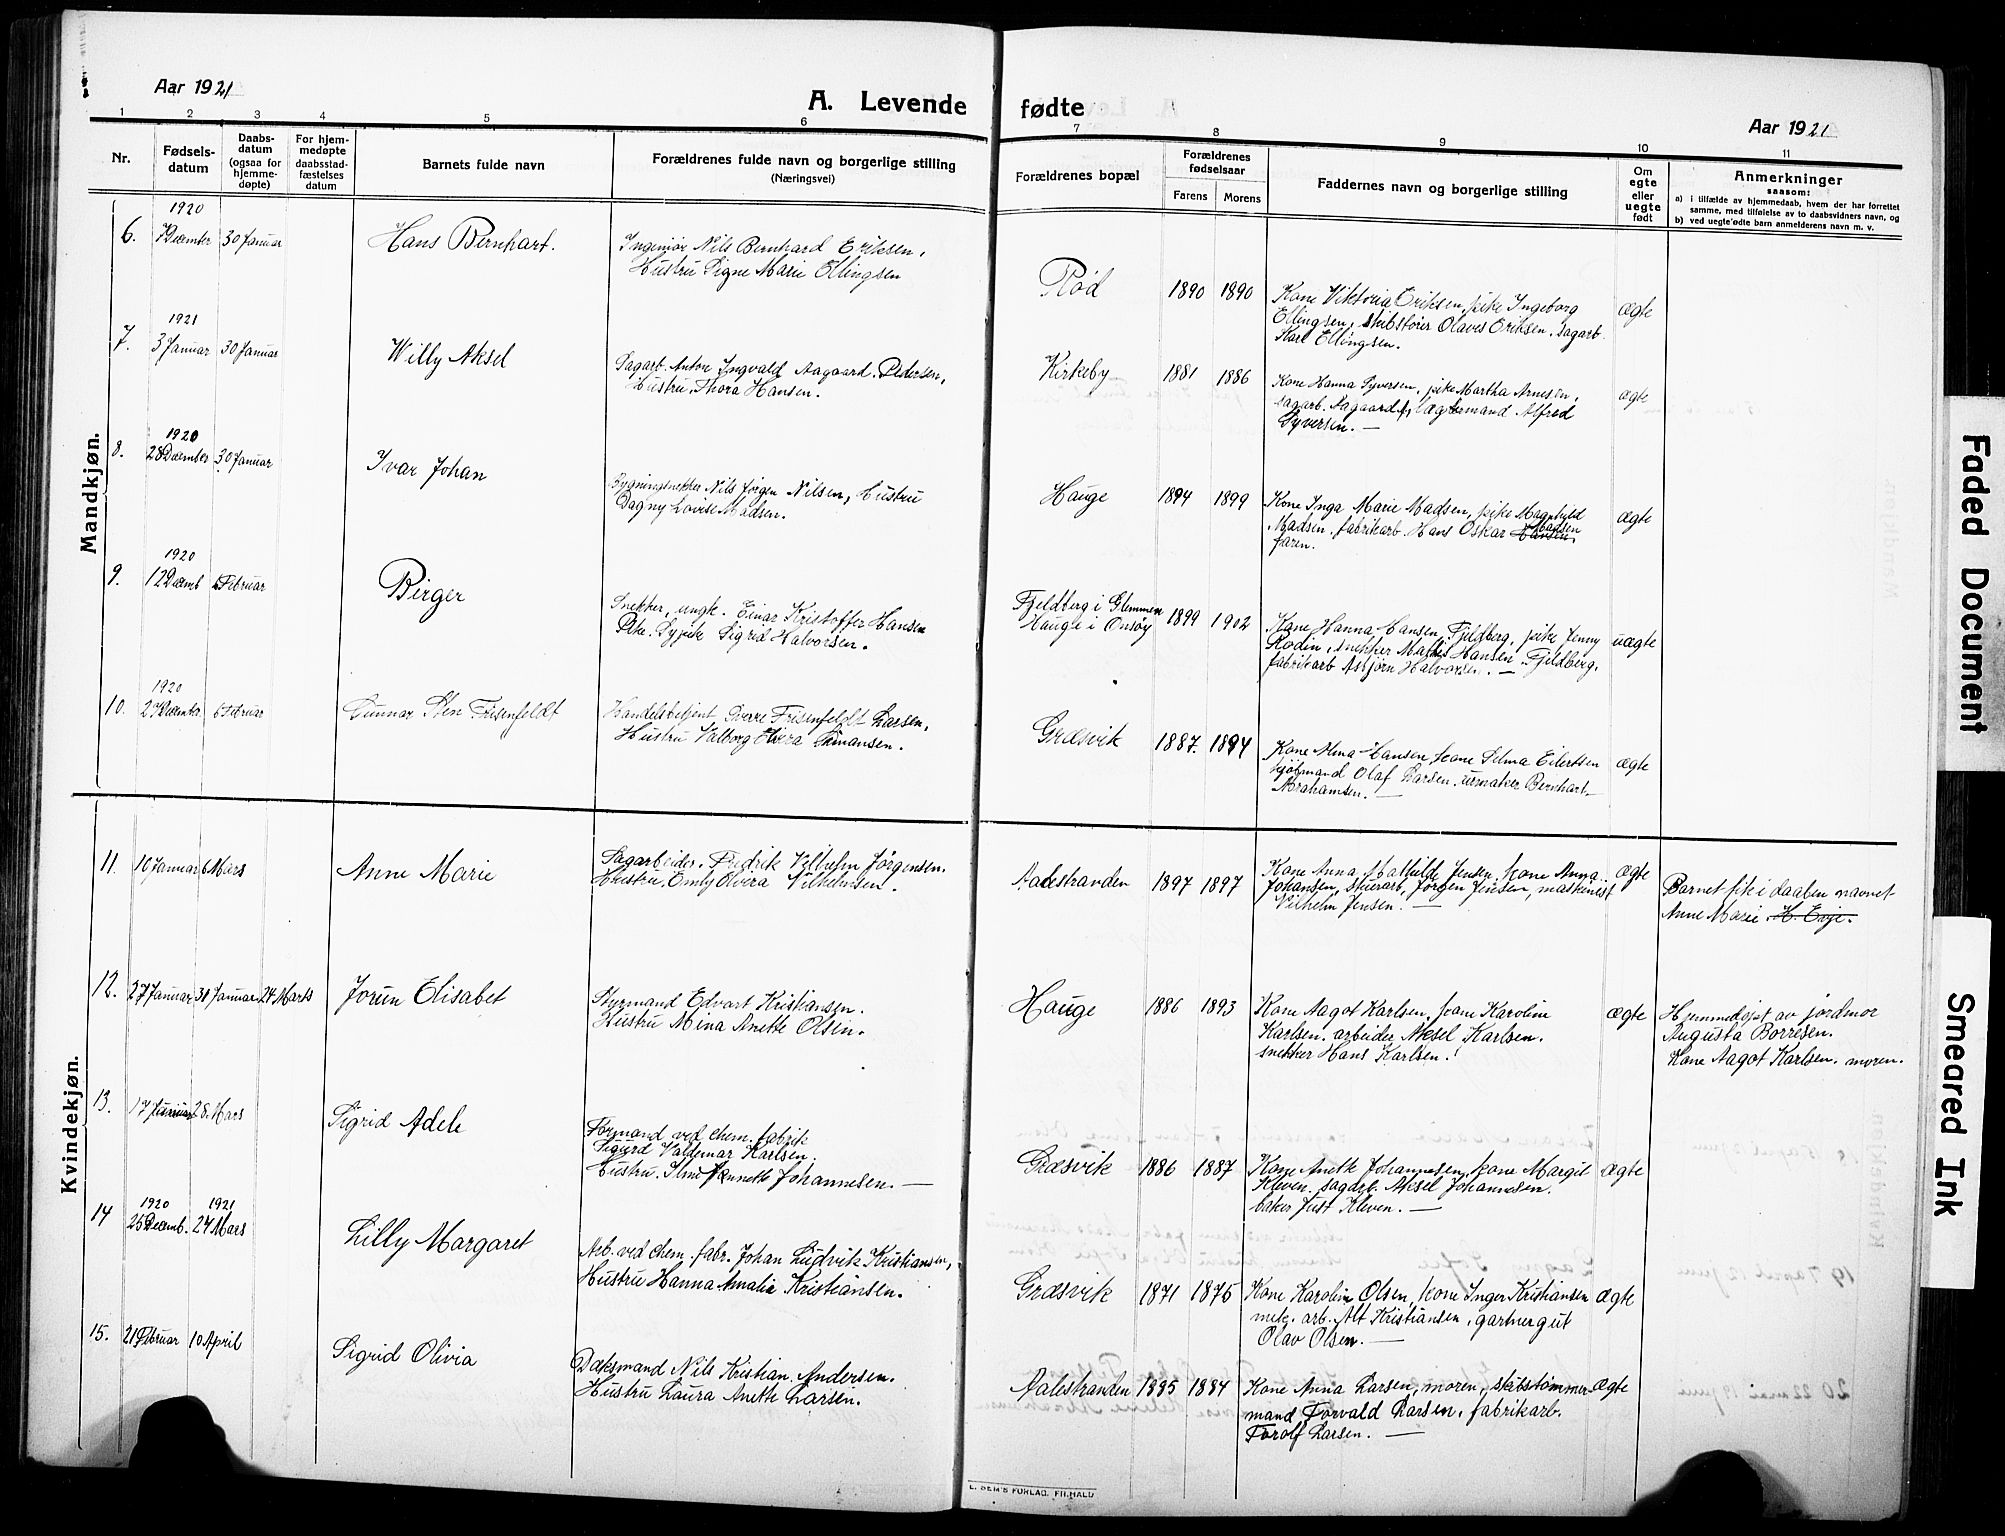 Aar 1921
A. Levende fødte
Aar 1921
1 2 3 4 5 6 7 8 9 10 11
Nr.
Fødsels-
datum
Daabs-
datum
(ogsaa for
hjemme-
døpte)
For hjem-
medøpte
daabsstad-
fæstelses
datum
Barnets fulde navn
Forældrenes fulde navn og borgerlige stilling
(Næringsvei)
Forældrenes bopæl
Forældrenes
fødselsaar
Farens Morens
Faddernes navn og borgerlige stilling
Om
egte
eller
uegte
født
Anmerkninger
saasom:
a) i tilfælde av hjemmedaab, hvem der har forrettet
samme, med tilføielse av to daabsvidners navn, og
b) ved uegte fødte barn anmelderens navn m. v.
Mandkjøn.
6. 1920
7 December 30 Januar Hans Bernhart.
Ingeniør Nils Bernhard Eriksen,
Hustru Signe Marie Ellingsen
Rød 1890 1890
Kone Viktoria Eriksen, pike Ingeborg
Ellingsen, skibstører Olaves Eriksen, sagarb.
Karl Ellingsen.
ægte
7. 1921
3 Januar 30 Januar Willy Aksel
Sagarb. Anton Ingvald Aagaard Pedersen,
Hustru Thora Hansen.
Kirkeby 1881 1886
Kone Hanna Syversen, pike Martha Arnesen,
sagarb. Aagaard, lægtermand Alfred
Syversen. —
ægte
8. 1920
28 December 30 Januar Ivar Johan
Bygningsnekker Nils Jørgen Nilsen, Hustru
Dagny Lovise Madsen.
Hauge 1894 1899
Kone Inga Marie Madsen, pike Magnhild
Madsen, fabrikarb. Hans Oskar Hansen, Madsen
faren.
ægte
9. 1920
12 Decemb 6 Februar Birger
Snekker, ungk. Einar Kristoffer Hansen
Pike. Sypike Sigrid Halvorsen.
Fjeldberg i Glemmen
Hauge i Onsøy 1899 1902
Kone Hanna Hansen, Fjeldberg, pike Jenny
Rodin, snekker Hansen Fjeldberg,
fabrikarb Asbjørn Halvorsen. —
uægte
10. 1920
27 December 6 Februar Gunnar Sten Frisenfeldt
Handelsbetjent Sverre Frisenfeldt Larsen,
Hustru Valborg Elvera Simansen.
Græsvik 1887. 1894
Kone Alma Hansen, kone Selma Eilertsen
kjøbmand Olaf Larsen, urmaker Bernhart
Abrahamsen. —
ægte
Kvindekjøn.
11. 10 Januar 6 Mars Anne Marie
Sagarbeider. Fredrik Vilhelm Jørgensen.
Hustru, Emly Elvera Vilhelmsen.
Aalestranden 1897 1897
Kone Anna Mathilde Jensen, kone Anna
Johansen, skierarb, Jørgen Jensen, maskinist
Vilhelm Jensen. —
ægte
Barnet fik i daaben navnet
Anne Marie. H. Evje.
12. 27 Januar 31 Januar 24 Marts Jorun Elisabet
Styrmand Edvart Kristiansen.
Hustru Mina Anette Olsen.
Hauge 1886 1893
Kone Aagot Karlsen, kone Karoline
Karlsen. arbeider Aksel Karlsen.
snekker Hans Karlsen.
ægte
Hjemmedøpt av jordmor
Augusta Børresen.
Kone Aagot Karlsen. moren.
13. 17 Januar 28. Mars Sigrid Adele
Formand ved chem. fabrik
Sigurd Valdemar Karlsen.
Hustru. Jennette Johannesen. —
Græsvik 1886 1887
Kone Anette Johannesen, kone Margit
Kleven. sagarb. Aksel Johannesen.
baker Just Kleven. —
ægte
14 1920 1921
25 Decemb. 24 Mars Lilly Margaret
Arb. ved chem. fabr. Johan Ludvik Kristiansen,
Hustru Hanna Amalie Kristiansen.
Græsvik 1871 1876
Kone Karolin Olsen, kone Inger Kristiansen
mek. arb. Alt Kristiansen, gartnergut
Olav Olsen. —
ægte
15. 21 Februar 10 April Sigrid Olivia
Dæksmand Nils Kristian Andersen.
Hustru Laura Anette Larsen.
Aalestranden 1885 1884
Kone Anna Larsen, moren, skibstømmer-
mand Torvald Larsen, fabrikarb.
Torolf Larsen. —
ægte
E. SEM'S FORLAG, FR.HALD
Faded Document
Smeared Ink